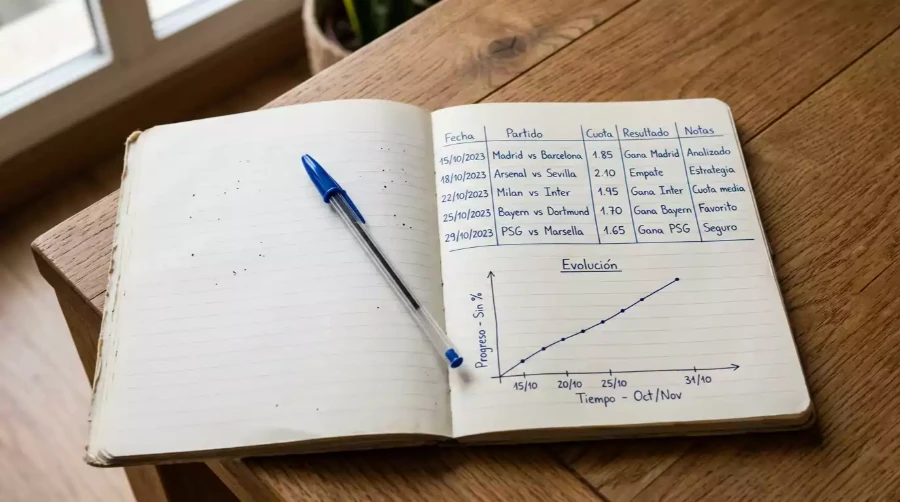 Fecha Partido Cuota Resultado Notas
15/10/2023 Madrid vs Barcelona 1.85 Gana Madrid Analizado
18/10/2023 Arsenal vs Sevilla 2.10 Empate Estrategia
22/10/2023 Milan vs Inter 1.95 Gana Inter Cuota media
25/10/2023 Bayern vs Dortmund 1.70 Gana Bayern Favorito
29/10/2023 PSG vs Marsella 1.65 Gana PSG Seguro
Evolución
Progreso - Sin %
15/10 20/10 25/10 31/10
Tiempo - Oct/Nov